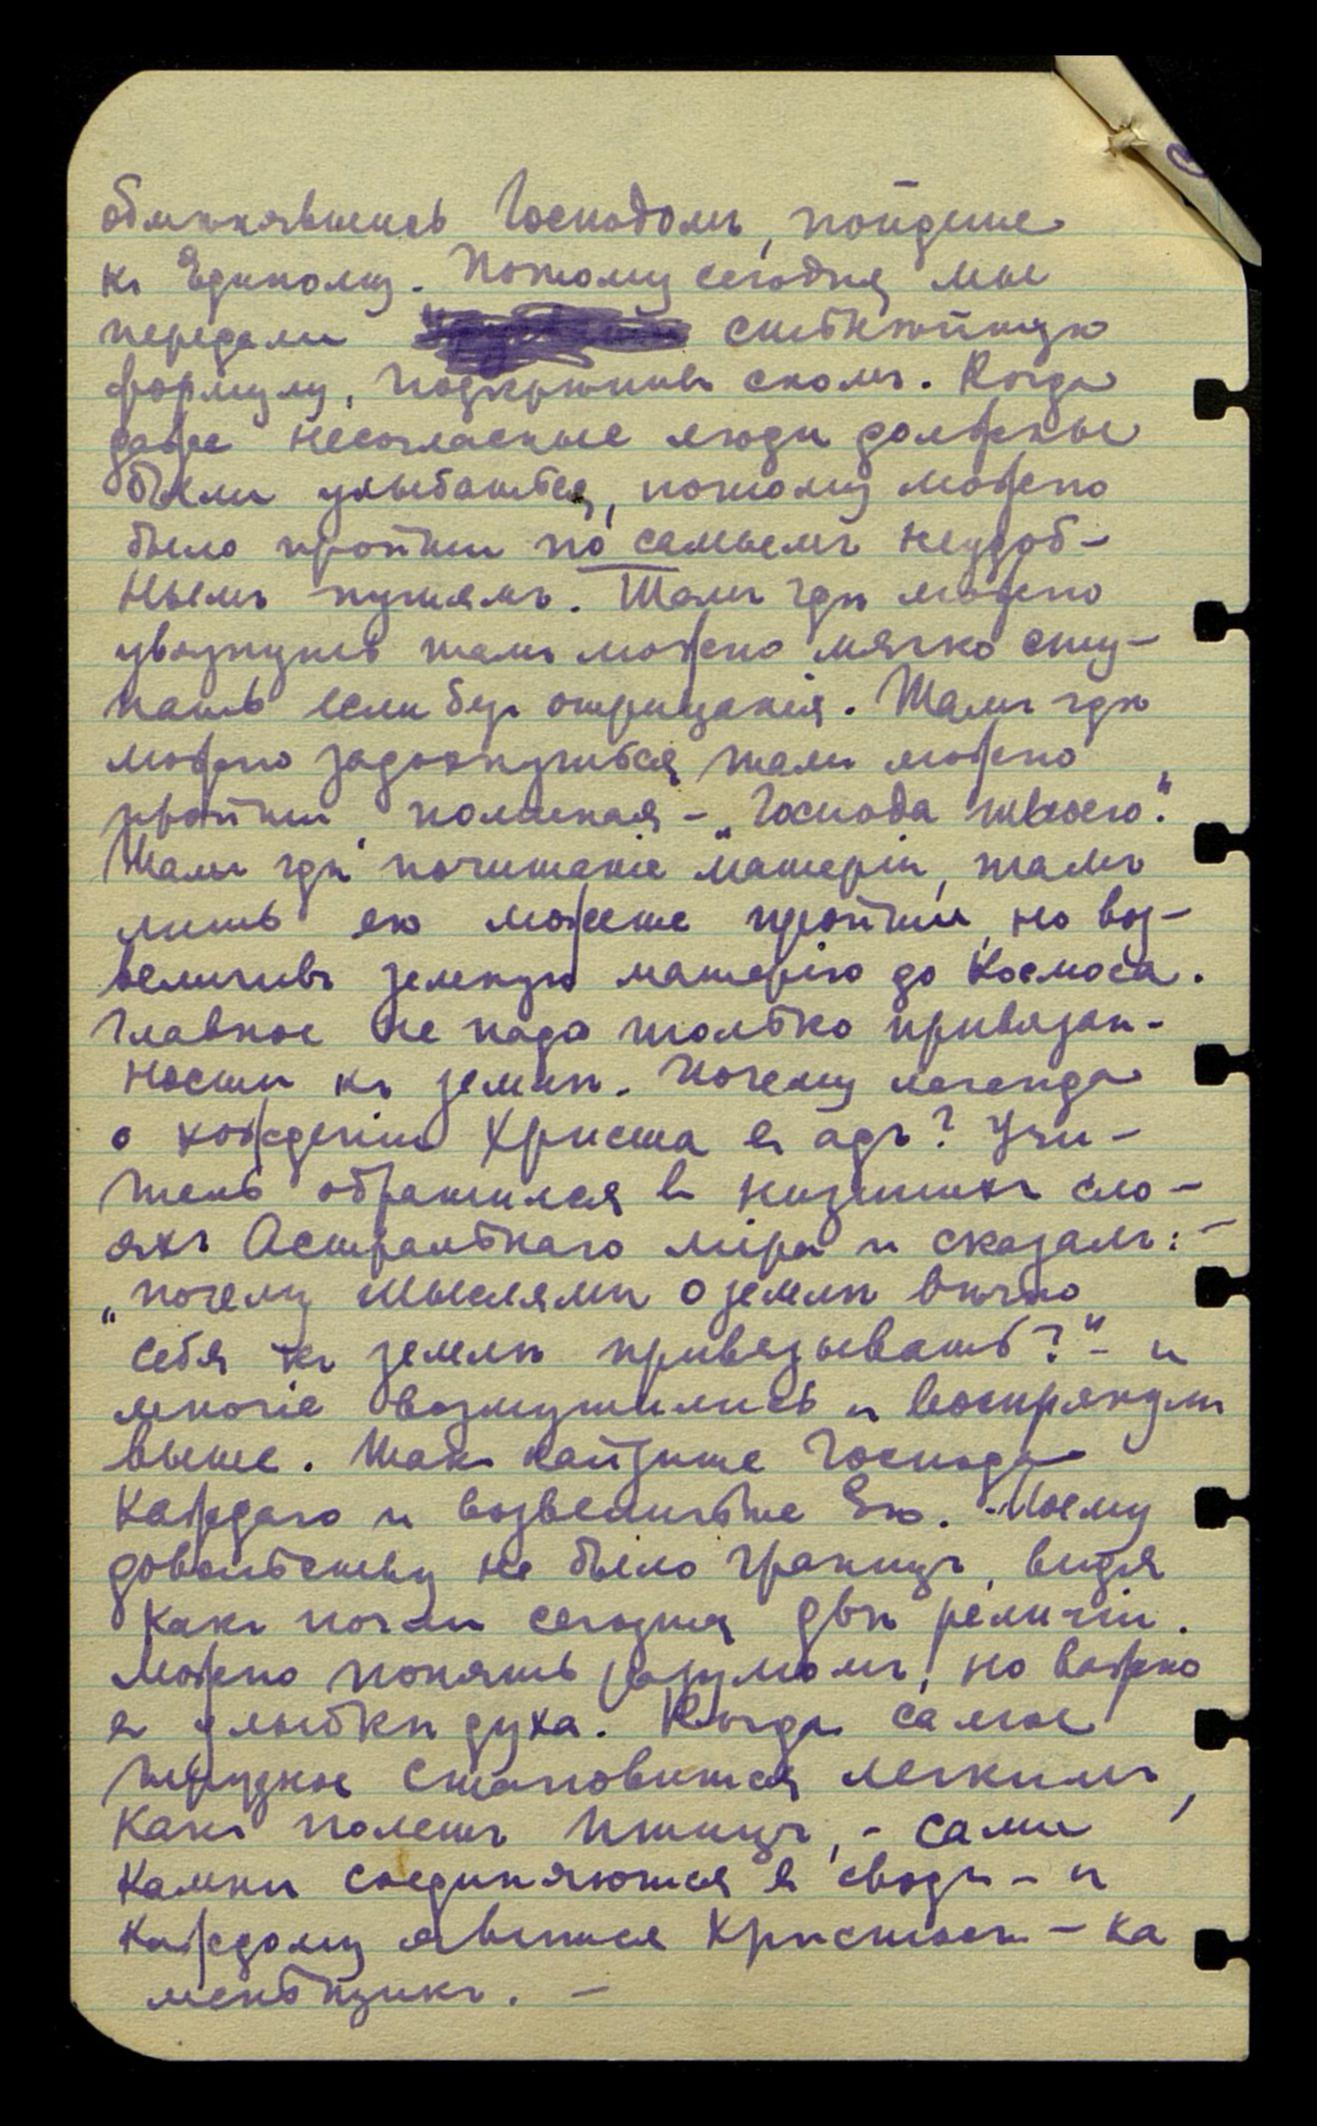 обмѣнявшись Господомъ, пойдете
къ Единому. Потому сегодня мы
передали сильнѣйшую
формулу, подкрѣпивъ сномъ. Когда
даже несогласные люди должны
были улыбаться, потому можно
было пройти по самымъ неудоб-
нымъ путямъ. Тамъ гдѣ можно
увязнуть тамъ можно мягко сту-
пать если безъ отрицанія. Тамъ гдѣ
можно задохнуться тамъ можно
пройти, полагая – „Господа твоего".
Тамъ гдѣ почитаніе матеріи, тамъ
лишь ею можете пройти, но воз-
величивъ земную матерію до Космоса.
Главное не надо только привязан-
ности къ землѣ. Почему легенда
о хожденіи Христа въ адъ? Учи-
тель обратился въ низшихъ сло-
яхъ Астральнаго міра и сказалъ: –
„почему мыслями о землѣ вѣчно
себя къ землѣ привязывать?" – и
многіе возмутились и воспрянули
выше. Такъ найдите Господа
каждаго и возвеличьте Его. – Моему
довольству не было границъ, видя
какъ почли сегодня двѣ религіи.
Можно понять разумомъ, но важно
въ улыбкѣ духа. Когда самое
трудное становится легкимъ,
какъ полетъ птицъ, – сами
камни соединяются въ сводъ – и
каждому явится Христосъ – ка
меньщикъ. –